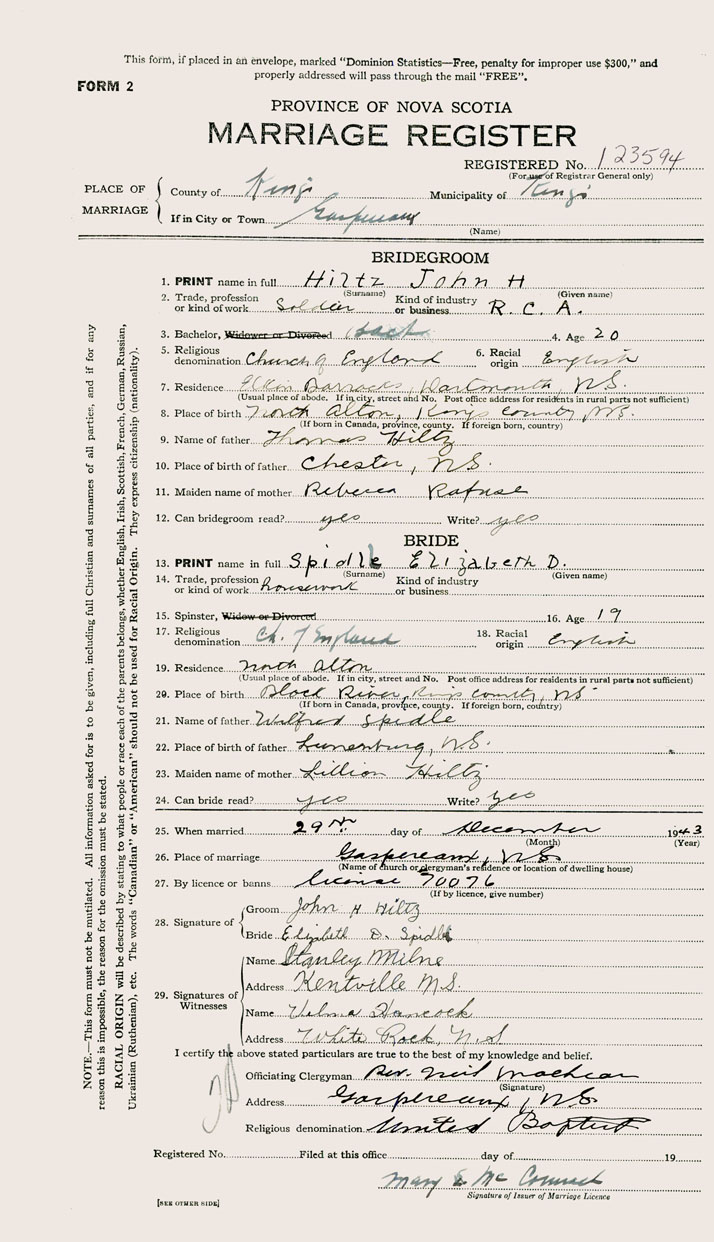 This form, if placed in an envelope, marked "Dominion Statistics—Free, penalty for improper use $300," and
properly addressed will pass through the mail "FREE".
FORM 2
PROVINCE OF NOVA SCOTIA
MARRIAGE REGISTER
REGISTERED No. 123594
(For use of Registrar General only)
PLACE OF MARRIAGE
County of Kings Municipality of Kings
If in City or Town Gaspereaux
(Name)
BRIDEGROOM
1. PRINT name in full Hiltz John H
(Surname) (Given name)
2. Trade, profession or kind of work Soldier Kind of industry or business R.C.A.
3. Bachelor, Widower or Divorced bach 4. Age 20
5. Religious denomination Church of England 6. Racial origin English
7. Residence Barracks, Dartmouth, N.S.
(Usual place of abode. If in city, street and No. Post office address for residents in rural parts not sufficient)
8. Place of birth North Alton, Kings County, N.S.
(If born in Canada, province, county. If foreign born, country)
9. Name of father Thomas Hiltz
10. Place of birth of father Chester, N.S.
11. Maiden name of mother Rebecca Rafuse
12. Can bridegroom read? yes Write? yes
BRIDE
13. PRINT name in full Spidle Elizabeth D.
(Surname) (Given name)
14. Trade, profession or kind of work housework Kind of industry or business
15. Spinster, Widow or Divorced 16. Age 19
17. Religious denomination Ch. of England 18. Racial origin English
19. Residence North Alton
(Usual place of abode. If in city, street and No. Post office address for residents in rural parts not sufficient)
20. Place of birth Black River, Kings County, N.S.
(If born in Canada, province, county. If foreign born, country)
21. Name of father Wilfred Spidle
22. Place of birth of father Lunenburg, N.S.
23. Maiden name of mother Lillian Hiltz
24. Can bride read? yes Write? yes
25. When married 29th day of December 1943
(Month) (Year)
26. Place of marriage Gaspereaux, N.S.
(Name of church or clergyman's residence or location of dwelling house)
27. By licence or banns license 70076
(If by licence, give number)
28. Signature of
Groom John H Hiltz
Bride Elizabeth D. Spidle
29. Signatures of Witnesses
Name Stanley Milne
Address Kentville N.S.
Name Velma Hancock
Address White Rock, N.S
I certify the above stated particulars are true to the best of my knowledge and belief.
Officiating Clergyman Rev. Neil MacLean
(Signature)
Address Gaspereaux, N.S.
Religious denomination United Baptist
Registered No. Filed at this office day of 19
Mary E Mc Cormack
Signature of Issuer of Marriage Licence
[SEE OTHER SIDE]
NOTE.—This form must not be mutilated. All information asked for is to be given, including full Christian and surnames of all parties, and if for any
reason this is impossible, the reason for the omission must be stated.
RACIAL ORIGIN will be described by stating to what people or race each of the parents belongs, whether English, Irish, Scottish, French, German, Russian,
Ukrainian (Ruthenian), etc. The words "Canadian" or "American" should not be used for Racial Origin. They express citizenship (nationality).